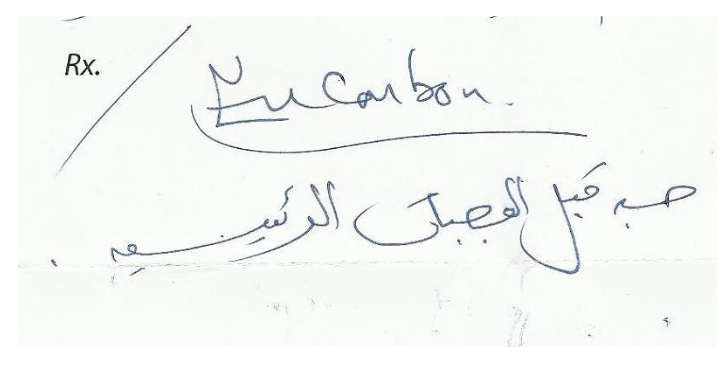 Rx.
Eucarbon.
حبه قبل الوجبات الرئيسيه.